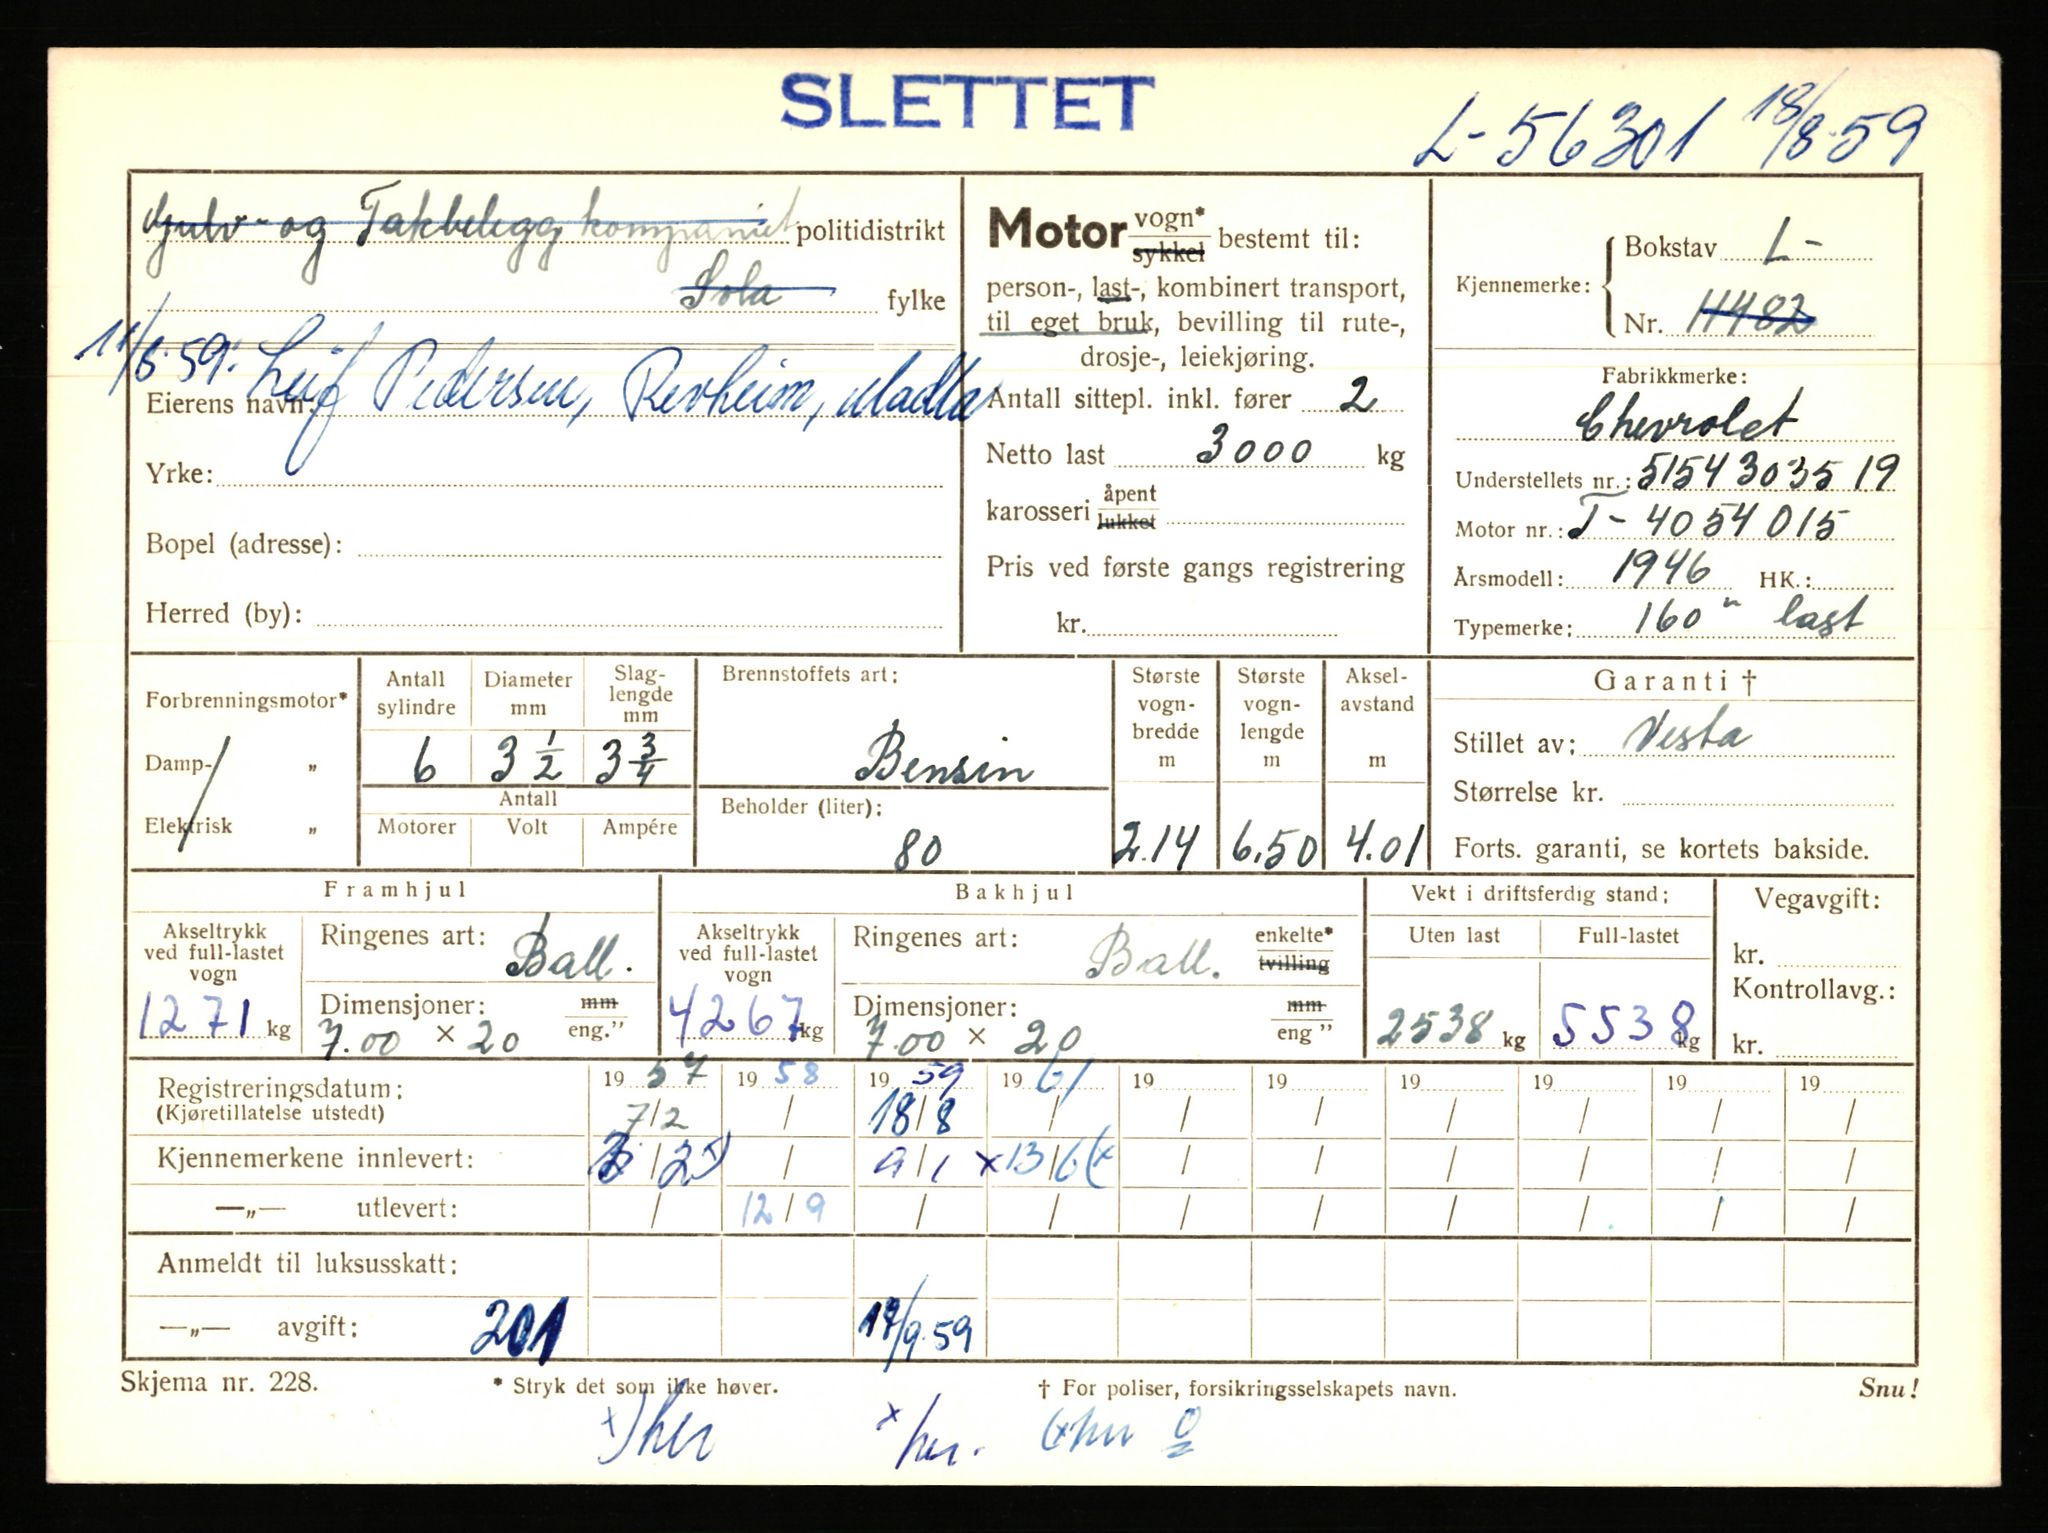 SLETTET
L-56301 18/8-59
Gulv- og Takbelegg kompaniet politidistrikt
Sola fylke
11/8-59: Leif Pedersen, Revheim, Madla
Eierens navn:
Yrke:
Bopel (adresse):
Herred (by):
Motor vogn* sykkel bestemt til:
person-, last-, kombinert transport,
til eget bruk, bevilling til rute-,
drosje-, leiekjøring.
Antall sittepl. inkl. fører 2
Netto last 3000 kg
karosseri åpent lukket
Pris ved første gangs registrering
kr.
Kjennemerke: Bokstav L-
Nr. 11482
Fabrikkmerke:
Chevrolet
Understellets nr.: 5154303519
Motor nr.: T-4054015
Årsmodell: 1946 HK.:
Typemerke: 160" last
Forbrenningsmotor*
Damp- "
Elektrisk "
Antall sylindre 6
Diameter mm 3 1/2
Slaglengde mm 3 3/4
Antall
Motorer Volt Ampére
Brennstoffets art:
Bensin
Beholder (liter):
80
Største vognbredde m 2.14
Største vognlengde m 6.50
Akselavstand m 4.01
Garanti †
Stillet av: Vesta
Størrelse kr.
Forts. garanti, se kortets bakside.
Framhjul
Akseltrykk ved full-lastet vogn
1271 kg
Ringenes art: Ball.
Dimensjoner: mm
7.00 × 20 eng."
Bakhjul
Akseltrykk ved full-lastet vogn
4267 kg
Ringenes art: Ball. enkelte* tvilling
Dimensjoner: mm
7.00 × 20 eng "
Vekt i driftsferdig stand:
Uten last Full-lastet
2538 kg 5538 kg
Vegavgift:
kr.
Kontrollavg.:
kr.
Registreringsdatum: 19 57 19 58 19 59 19 61 19 19 19 19 19 19
(Kjøretillatelse utstedt) 7/2 / 18/8 / / / / / / /
Kjennemerkene innlevert: / 2 x) / 9/1 x 13/6 (x / / / / / /
—„— utlevert: / 12/9 / / / / / / / /
Anmeldt til luksusskatt:
—„— avgift: 201 17/9-59
Skjema nr. 228. * Stryk det som ikke høver. † For poliser, forsikringsselskapets navn. Snu!
x) her x her. (x her 0